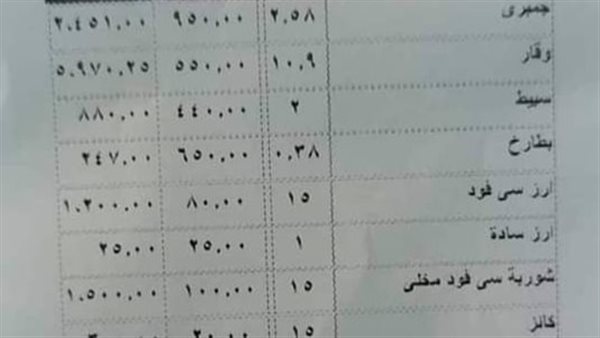 جمبرى ٢.٥٨ ٩٥٠.٠٠ ٢.٤٥١.٠٠
وقار ١٠.٩ ٥٥٠.٠٠ ٥.٩٧٠.٢٥
سبيط ٢ ٤٤٠.٠٠ ٨٨٠.٠٠
بطارخ ٠.٣٨ ٦٥٠.٠٠ ٢٤٧.٠٠
ارز سى فود ١٥ ٨٠.٠٠ ١.٢٠٠.٠٠
ارز سادة ١ ٢٥.٠٠ ٢٥.٠٠
شوربة سى فود مخلى ١٥ ١٠٠.٠٠ ١.٥٠٠.٠٠
كانز ١٥ ٢٠.٠٠